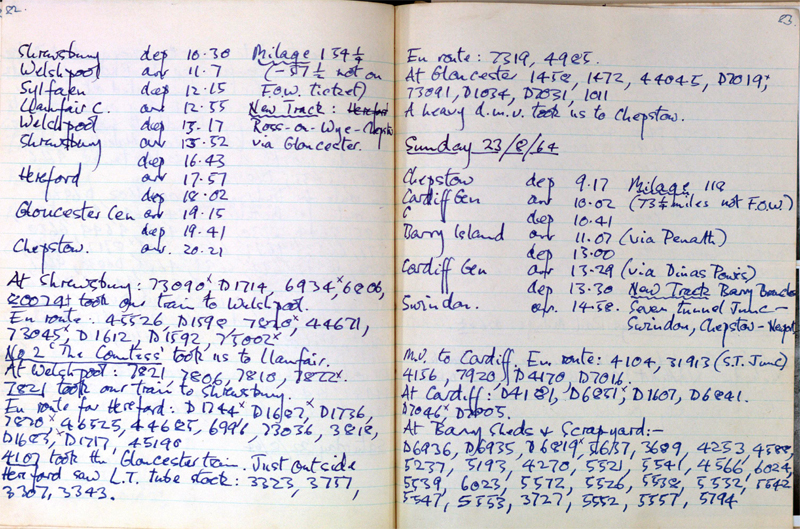 22.
Shrewsbury dep 10.30 Milage 154 1/4
Welshpool arr 11.7 (-57 1/2 not on
Sylfaen dep 12.15 F.O.W. ticket)
Llanfair C. arr 12.55 New Track:
Welshpool dep 13.17 Ross-on-Wye-Chepstow
Shrewsbury arr 13.52 via Gloucester.
dep 16.43
Hereford arr 17.57
dep 18.02
Gloucester Cen arr 19.15
dep 19.41
Chepstow. arr. 20.21
At Shrewsbury: 73090x D1714, 6934,x 6806,
80079 took our train to Welshpool.
En route: 45526, D1598, 7820x, 44671,
73045x D1612, D1592, 75002x
No 2 'The Countess' took us to Llanfair.
At Welshpool: 7821, 7806, 7810, 7822x.
7821 took our train to Shrewsbury.
En route for Hereford: D1744x D1687,x D1736,
7820x 46525, 44685, 6996, 73036, 3818,
D1683,x D1717, 45190
4107 took the Gloucester train. Just outside
Hereford saw L.T. tube stock: 3323, 3757,
3307, 3343.
23.
En route: 7319, 4985.
At Gloucester 1458, 1472, 44045, D7019x,
73091, D1034, D7031, 1011
A heavy d.m.u. took us to Chepstow.
Sunday 23/8/64
Chepstow dep 9.17 Milage 118
Cardiff Gen arr 10.02 (73 1/4 miles not F.O.W.)
C dep 10.41
Barry Island arr 11.07 (via Penarth)
dep 13.00
Cardiff Gen arr 13.29 (via Dinas Powis)
dep 13.30 New Track Barry Branches
Swindon. arr. 14.58. Severn Tunnel Junc-
Swindon, Chepstow-Newpt
M.U. to Cardiff. En route: 4104, 31913 (S.T. Junc)
4156, 7920, D4170, D7016.
At Cardiff: D4181, D6851x, D1607, D6841.
D7046x D7005.
At Barry Sheds & Scrapyard:-
D6936, D6935, D6819x, 5637, 3689, 4253, 4588,
5237, 5193, 4270, 5521, 5541, 4566, 6024,
5539, 6023, 5572, 5526, 5538, 5532, 5542
5547, 5553, 3727, 5552, 5557, 5794